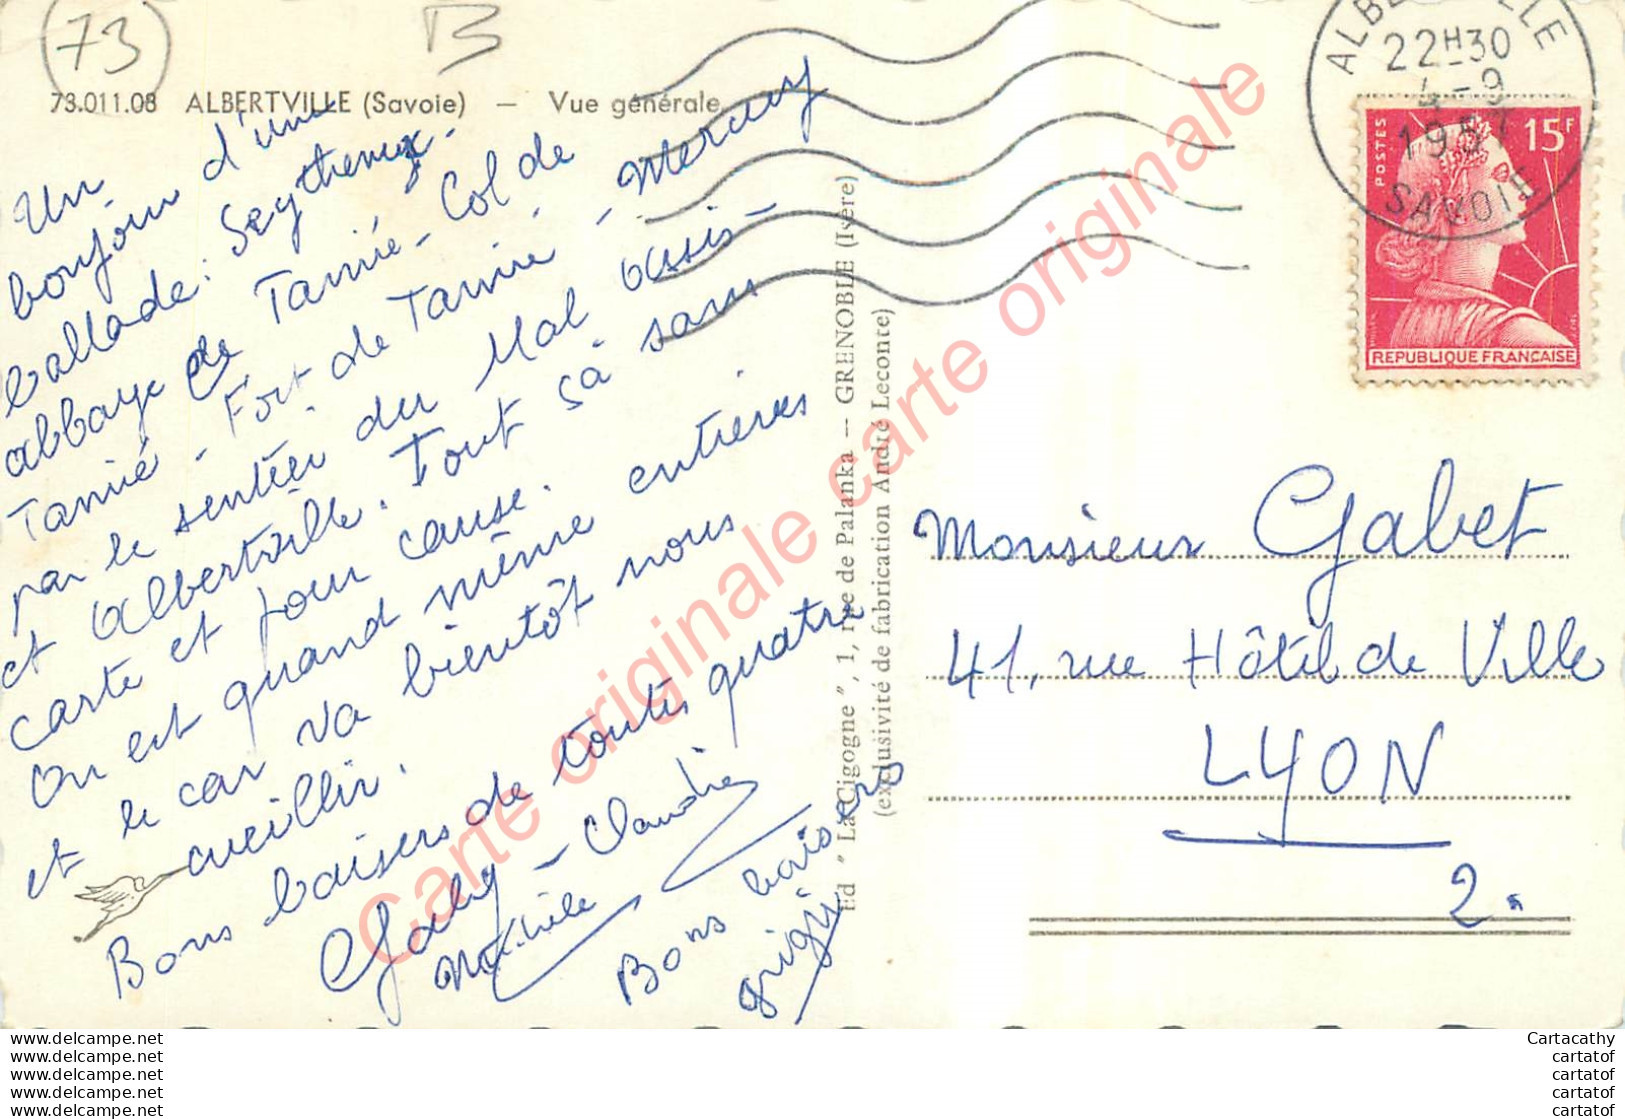 73
B
73.011.08 ALBERTVILLE (Savoie) — Vue générale
Un
bonjour d'une
ballade : Seythenex.
abbaye de Tamié - Col de
Tamié - Fort de Tamié - Mercury
par le sentier du Mal assis -
et Albertville. Tout sà sans
carte et pour cause.
On est quand même entières
et le car va bientôt nous
cueillir.
Bons baisers de toutes quatre
Gaby - Claudie
Bons baisers
gigi
Ed " La Cigogne ", 1, rue de Palanka — GRENOBLE (Isère)
(exclusivité de fabrication André Leconte)
ALBERTVILLE
22H30
4-9
1957
SAVOIE
POSTES
15F
REPUBLIQUE FRANÇAISE
Monsieur Gabet
41, rue Hôtel de Ville
LYON
2.
Carte originale carte originale carte originale
www.delcampe.net
www.delcampe.net
www.delcampe.net
www.delcampe.net
www.delcampe.net
Cartacathy
cartatof
cartatof
cartatof
cartatof